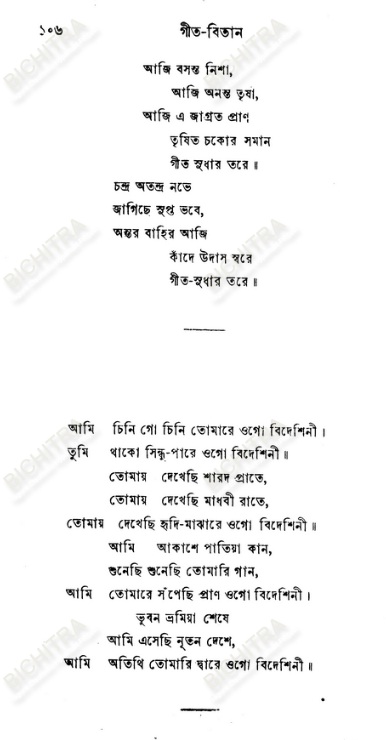 ১০৬ গীত-বিতান
আজি বসন্ত নিশা,
আজি অনন্ত তৃষা,
আজি এ জাগ্রত প্রাণ
তৃষিত চকোর সমান
গীত সুধার তরে॥
চন্দ্র অতন্দ্র নভে
জাগিছে সুপ্ত ভবে,
অন্তর বাহির আজি
কাঁদে উদাস স্বরে
গীত-সুধার তরে॥
আমি চিনি গো চিনি তোমারে ওগো বিদেশিনী।
তুমি থাকো সিন্ধু-পারে ওগো বিদেশিনী॥
তোমায় দেখেছি শারদ প্রাতে,
তোমায় দেখেছি মাধবী রাতে,
তোমায় দেখেছি হৃদি-মাঝারে ওগো বিদেশিনী॥
আমি আকাশে পাতিয়া কান,
শুনেছি শুনেছি তোমারি গান,
আমি তোমারে সঁপেছি প্রাণ ওগো বিদেশিনী।
ভুবন ভ্রমিয়া শেষে
আমি এসেছি নূতন দেশে,
আমি অতিথি তোমারি দ্বারে ওগো বিদেশিনী॥
BICHITRA
BICHITRA
BICHITRA
BICHITRA
BICHITRA
BICHITRA
BICHITRA
BICHITRA